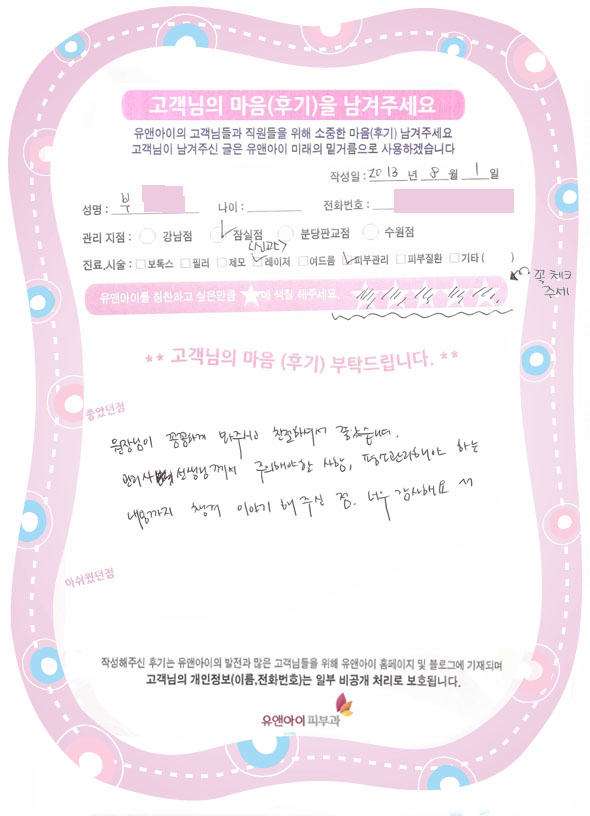 고객님의 마음(후기)을 남겨주세요
유앤아이의 고객님들과 직원들을 위해 소중한 마음(후기) 남겨주세요
고객님이 남겨주신 글은 유앤아이 미래의 밑거름으로 사용하겠습니다
작성일 : 2013 년 8 월 1 일
성명 : 부 나이 : 전화번호 :
관리 지점 : 강남점 잠실점 분당판교점 수원점
(신관)
진료,시술 : 보톡스 필러 제모 레이저 여드름 피부관리 피부질환 기타 ( )
유앤아이를 칭찬하고 싶은만큼 ★에 색칠 해주세요.
꼭 체크
주세
** 고객님의 마음 (후기) 부탁드립니다. **
좋았던점
원장님이 꼼꼼하게 봐주시고 친절하셔서 좋았습니다.
관리사 선생님께서 주의해야할 사항, 평소관리해야 하는
내용까지 챙겨 이야기 해 주신 점. 너무 감사해요 ^^
아쉬웠던점
작성해주신 후기는 유앤아이의 발전과 많은 고객님들을 위해 유앤아이 홈페이지 및 블로그에 기재되며
고객님의 개인정보(이름,전화번호)는 일부 비공개 처리로 보호됩니다.
유앤아이피부과